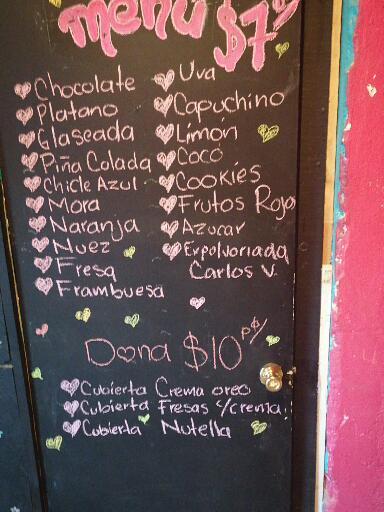 menú $7
Chocolate
Platano
Glaseada
Piña Colada
Chicle Azul
Mora
Naranja
Nuez
Fresa
Frambuesa
Uva
Capuchino
Limón
Coco
Cookies
Frutos Rojo
Azucar
Expolvoriada
Carlos V.
Dona $10 p$/
Cubierta Crema oreo
Cubierta Fresas c/crema
Cubierta Nutella